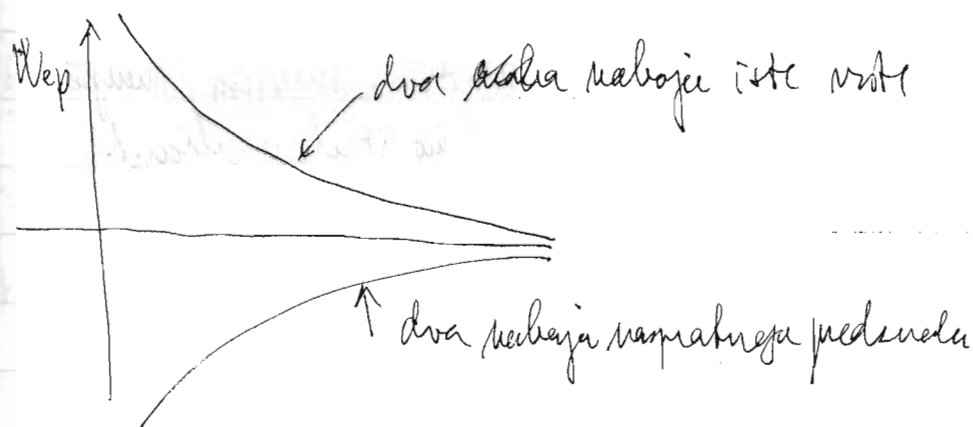 Wep
dva naboja iste vrste
dva naboja nasprotnega predznaka